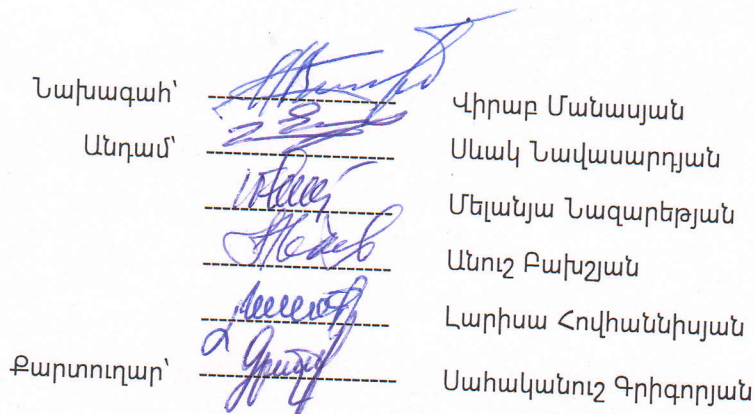 Նախագահ՝ Վիրաբ Մանասյան
Անդամ՝ Սևակ Նավասարդյան
Մելանյա Նազարեթյան
Անուշ Բախշյան
Լարիսա Հովհաննիսյան
Քարտուղար՝ Սահականուշ Գրիգորյան